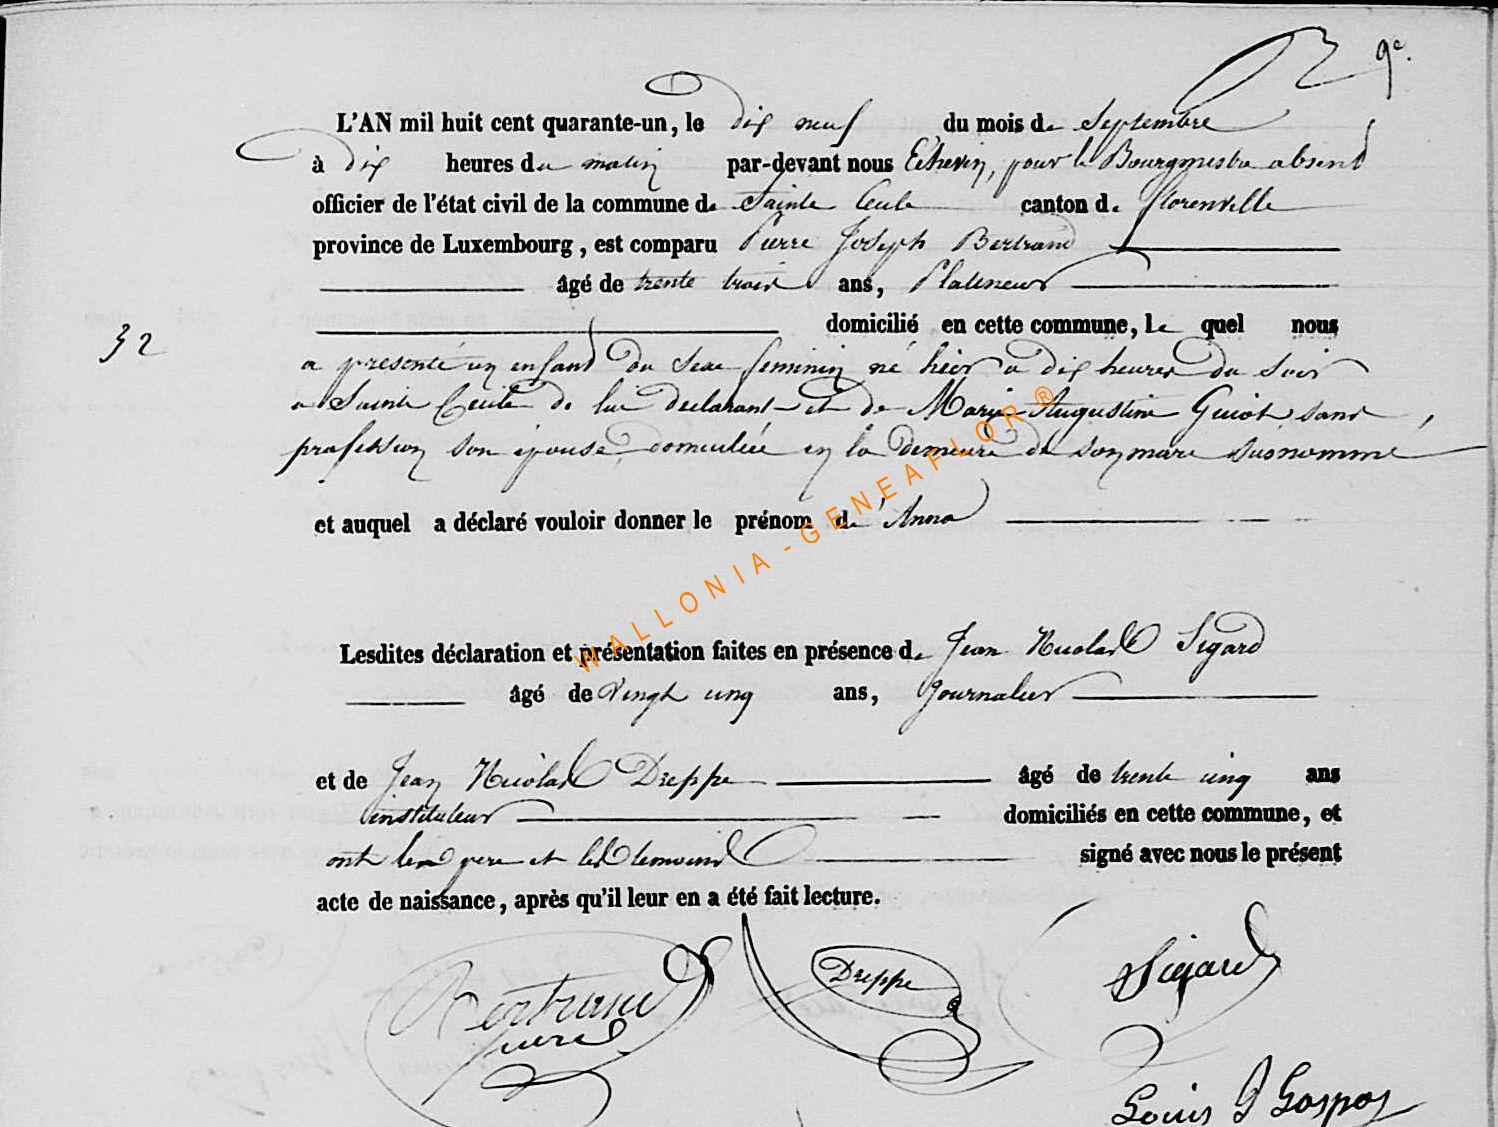 9e.
L'AN mil huit cent quarante-un, le dix neuf du mois de Septembre
à dix heures du matin par-devant nous Echevin, pour le Bourgmestre absent
officier de l'état civil de la commune de Sainte Cecile canton de florenville
province de Luxembourg, est comparu Pierre Joseph Bertrand
âgé de trente trois ans, Platineur
domicilié en cette commune, le quel nous
32
a presenté un enfant du sexe feminin né hier a dix heures du soir
a Sainte Cecile de lui declarant et de Marie Augustine Guiot sans
profession son épouse domiciliée en la demeure de son mari susnommé
et auquel a déclaré vouloir donner le prénom de Anna
Lesdites déclaration et présentation faites en présence de Jean Nicolas Sigard
âgé de vingt cinq ans, journalier
et de Jean Nicolas Dreppe âgé de trente cinq ans
instituteur domiciliés en cette commune, et
ont les pere et les temoins signé avec nous le présent
acte de naissance, après qu'il leur en a été fait lecture.
Bertrand
Dreppe
Sigard
Louis J Gospos
WALLONIA - GENEAFLOR ®